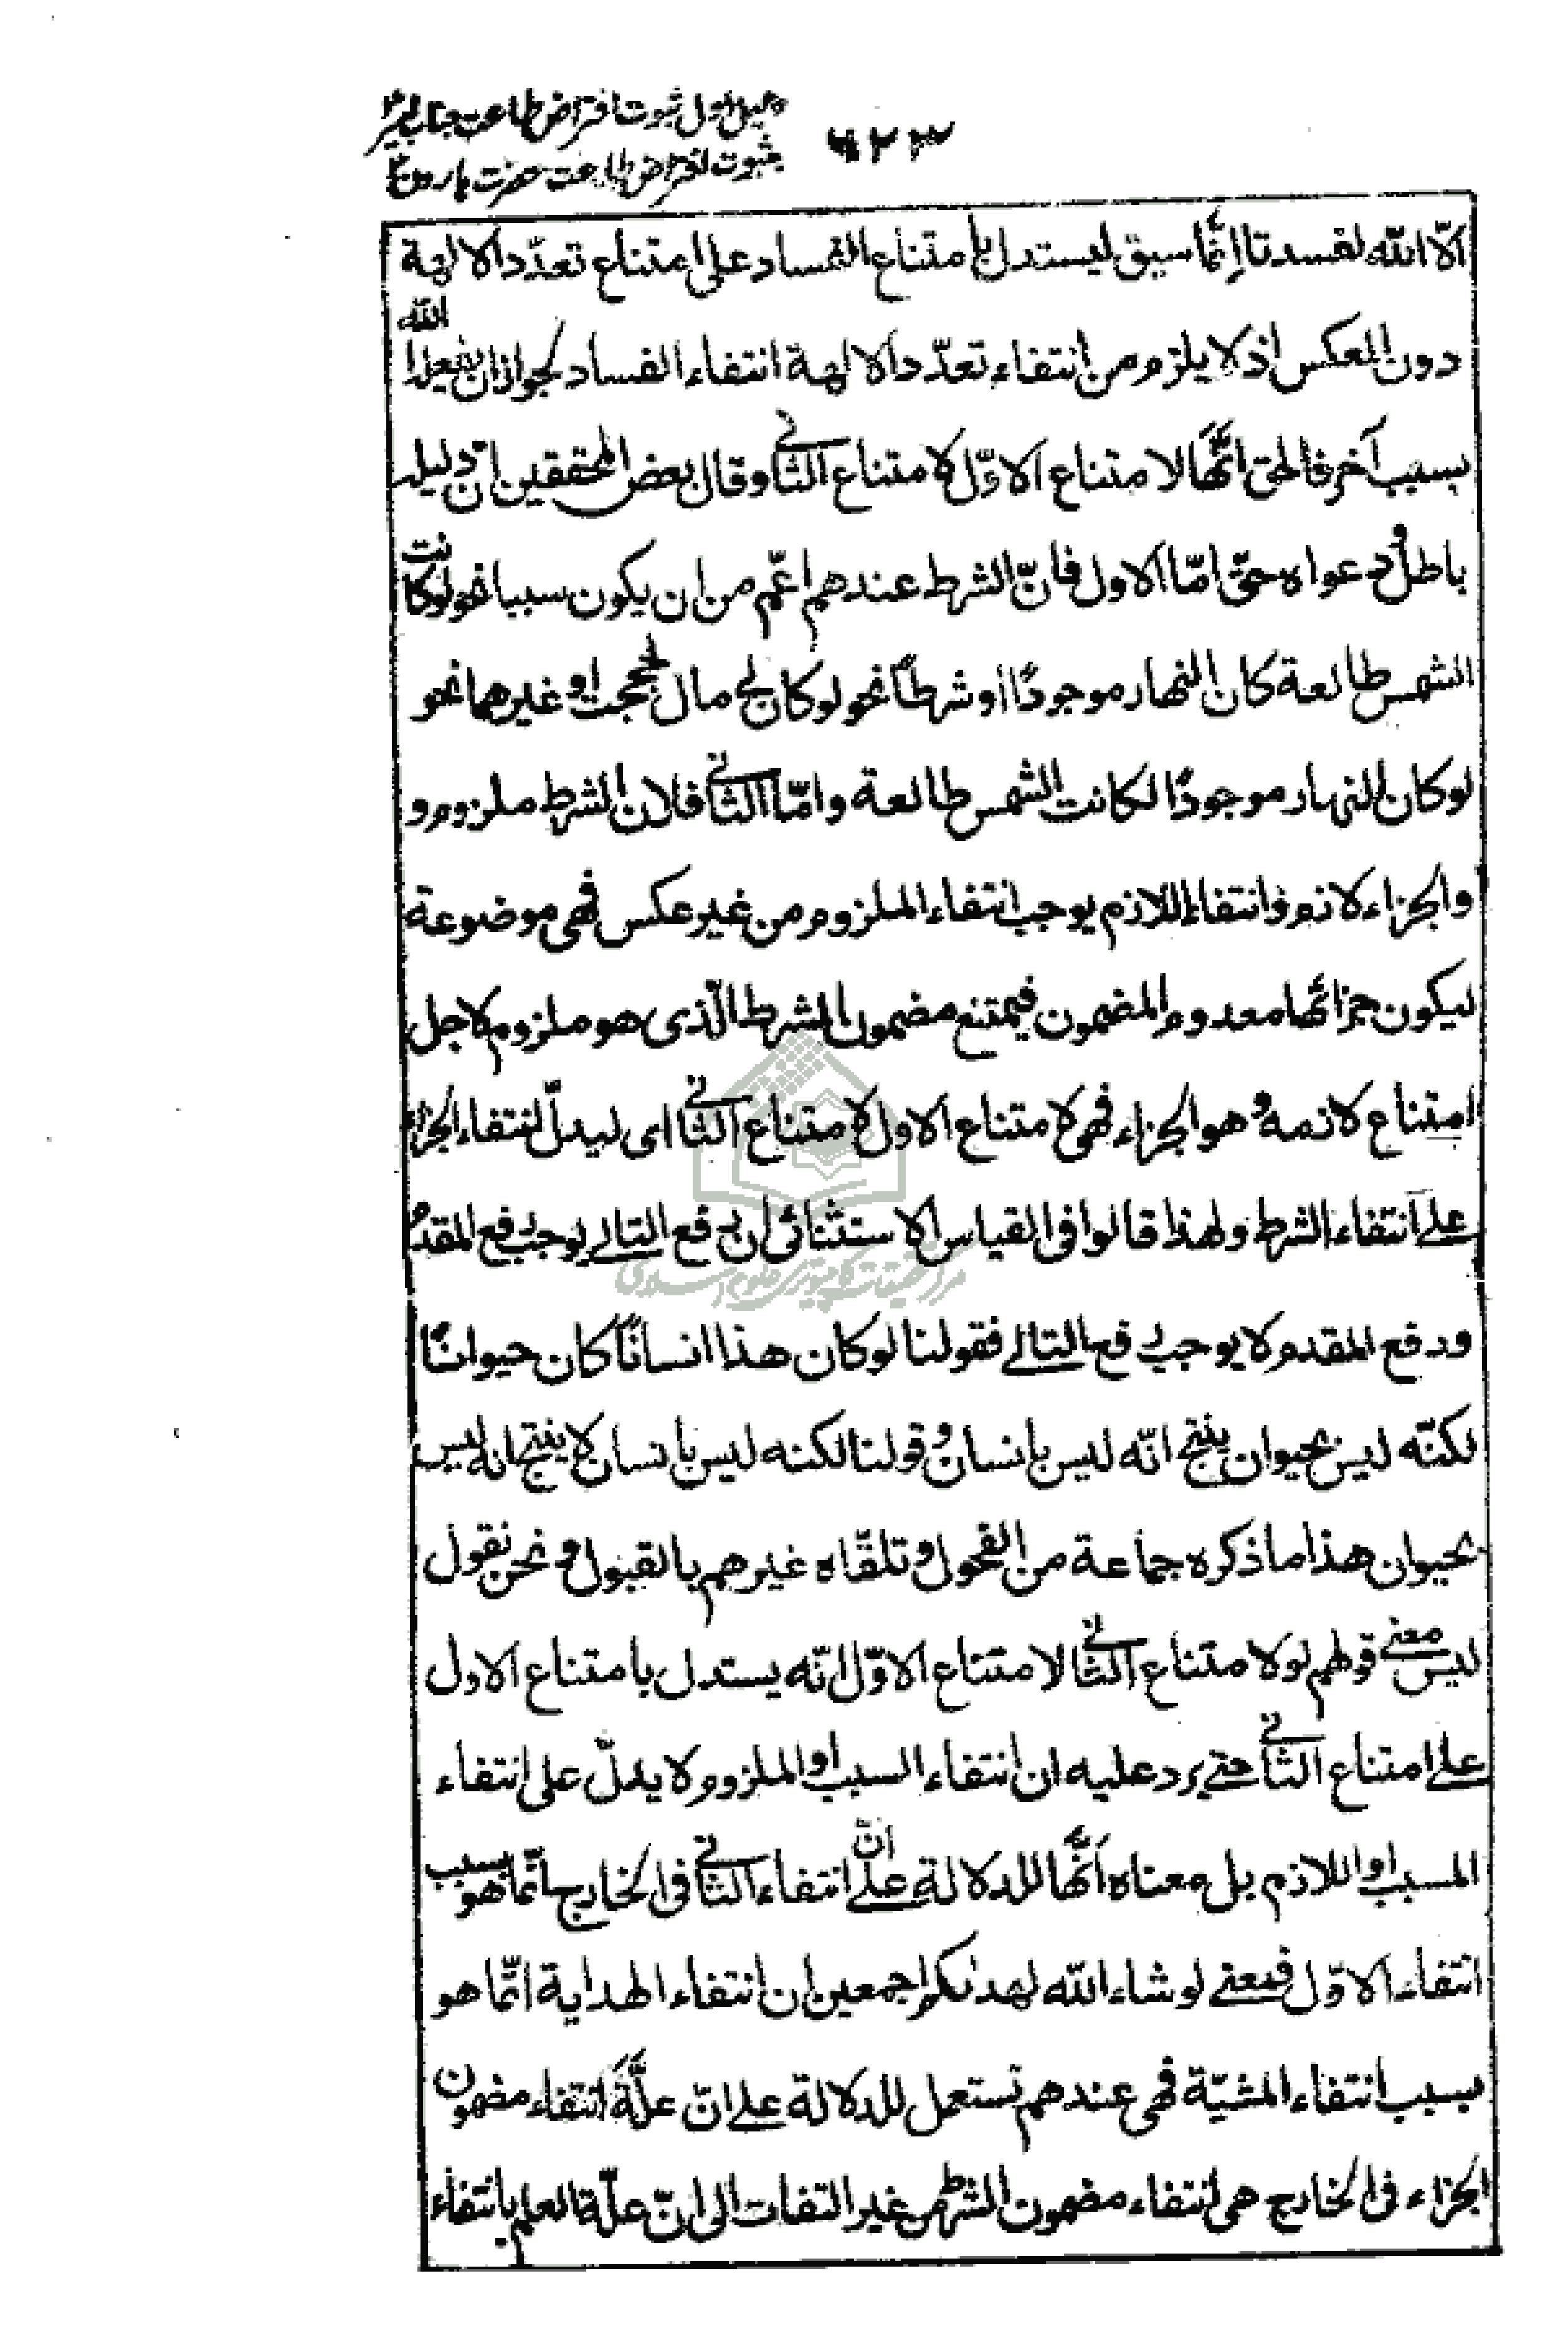 دلیل اول ثبوت افتراض طاعت جناب امیرؑ
بثبوت افتراض طاعت حضرت هارونؑ
۶۲۳
الّا اللّه لفسدتا إنّما سيق ليستدل بامتناع الفساد على امتناع تعدّد الالهة
دون العكس اذ لا يلزم من انتفاء تعدّد الالهة انتفاء الفساد لجواز ان يفعله اللّه
بسبب آخر فالحق انّها لامتناع الاوّل لامتناع الثانى وقال بعض المحققين انّ دليله
باطل ودعواه حقّ امّا الاول فانّ الشرط عندهم اعّم من ان يكون سببا نحو لو كانت
الشمس طالعة كان النهار موجودًا أو شرطًا نحو لو كان لى مال لحججت او غيرهما نحو
لو كان النهار موجودًا لكانت الشمس طالعة وامّا الثانى فلان الشرط ملزوم و
والجزاء لازم وانتفاء اللازم يوجب انتفاء الملزوم من غير عكس فهى موضوعة
ليكون جزائها معدوم المضمون فيمتنع مضمون الشرط الّذى هو ملزوم لاجل
امتناع لازمه وهو الجزاء فهى لامتناع الاول لامتناع الثانى اى ليدلّ انتفاء الجزاء
على انتفاء الشرط ولهذا قالوا فى القياس الاستثنائى ان رفع التالى يوجب رفع المقدم
ورفع المقدم لا يوجب رفع التالى فقولنا لو كان هذا انسانًا كان حيوانًا
لكنّه ليس بحيوان ينتج انّه ليس بانسان وقولنا لكنه ليس بانسان لا ينتج انه ليس
بحيوان هذا ما ذكره جماعة من الفحول وتلقّاه غيرهم بالقبول ونحن نقول
ليس معنى قولهم لو لامتناع الثانى لامتناع الاوّل انّه يستدل بامتناع الاول
على امتناع الثانى حتى يرد عليه ان انتفاء السبب او الملزوم لا يدلّ على انتفاء
المسبب او اللازم بل معناه انّها للدلالة على انّ انتفاء الثانى فى الخارج انّما هو بسبب
انتفاء الاوّل فمعنى لو شاء اللّه لهدىكم اجمعين ان انتفاء الهداية انّما هو
بسبب انتفاء المشيّة فهى عندهم تستعمل للدلالة على انّ علّة انتفاء مضمون
الجزاء فى الخارج هى انتفاء مضمون الشرط من غير التفات الى انّ علّة العلم بانتفاء
مركز تحقيقات كامپيوترى علوم اسلامى